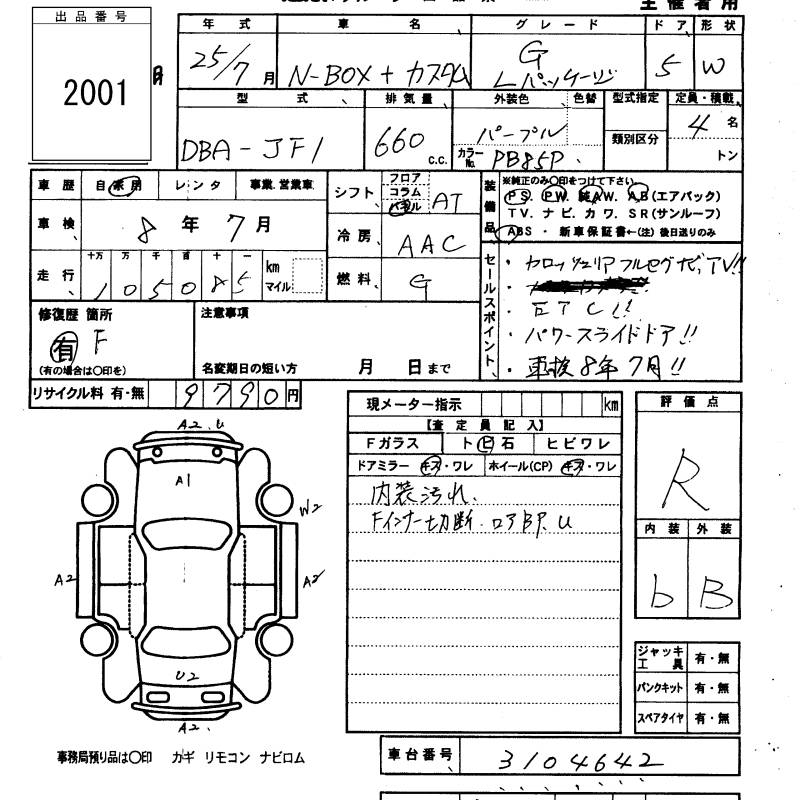 主催者用
出品番号
2001
年式 車名 グレード ドア 形状
25/7月 N-BOX+カスタム G Lパッケージ 5 W
型式 排気量 外装色 色替 型式指定 定員・積載
DBA-JF1 660 c.c. パープル カラーNo. PB85P 類別区分 4名 トン
車歴 自家用 レンタ 事業.営業車
シフト フロア コラム パネル AT
車検 8年7月
冷房 AAC
走行 十万 万 千 百 十 一 105085 km マイル
燃料 G
装備品 ※純正のみ○印をつけて下さい
PS. PW. 純AW. AB(エアバック)
TV. ナビ. カワ. SR(サンルーフ)
ABS ・ 新車保証書←(注)後日送りのみ
セールスポイント
・カロッツェリアフルセグナビ、TV!!
・ETC!!
・パワースライドドア!!
・車検8年7月!!
修復歴 箇所
有 F
(有の場合は○印を)
注意事項
名変期日の短い方 月 日まで
リサイクル料 有・無 9790円
現メーター指示 km
【査定員記入】
Fガラス トビ石 ヒビワレ
ドアミラー キズ・ワレ ホイール(CP) キズ・ワレ
内装汚れ.
Fインナー切断.ロアBP.U
評価点
R
内装 外装
b B
ジャッキ工具 有・無
パンクキット 有・無
スペアタイヤ 有・無
A2.U
A1
W2
A2
A2
U2
A2.
事務局預り品は○印 カギ リモコン ナビロム
車台番号 3104642